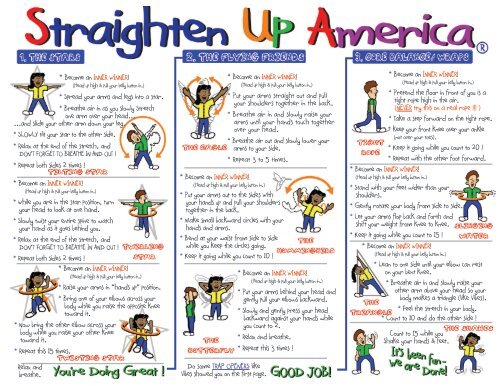 Straighten Up America®
1. THE STARS
* Become an INNER WINNER!
(Head up high & pull your belly button in.)
* Spread your arms and legs into a star.
* Breathe air in as you slowly stretch
one arm over your head...
...and slide your other arm down your leg.
* SLOWLY tilt your star to the other side.
* Relax at the end of the stretch, and
DON'T FORGET TO BREATHE IN AND OUT!
* Repeat both sides 2 times!
TILTING STAR
* Become an INNER WINNER!
(Head up high & pull your belly button in.)
* While you are in the star position, turn
your head to look at one hand.
* Slowly twist your entire spine to watch
your hand as it goes behind you.
* Relax at the end of the stretch, and
DON'T FORGET TO BREATHE IN AND OUT!
* Repeat both sides 2 times.
TWIRLING STAR
* Become an INNER WINNER!
(Head up high & pull your belly button in.)
* Raise your arms in "hands up" position.
* Bring one of your elbows across
your body while you raise the opposite knee
toward it.
* Now bring the other elbow across your
body while you raise your other knee
toward it.
* Repeat this 15 times.
Relax and
breathe.
TWISTING STAR
You're Doing Great!
2. THE FLYING FRIENDS
* Become an INNER WINNER!
(Head up high & pull your belly button in.)
* Put your arms straight out and pull
your shoulders together in the back.
* Breathe air in and slowly raise your
arms until your hands touch together
over your head.
* Breathe air out and slowly lower your
arms to your side.
* Repeat 3 to 5 times.
THE EAGLE
* Become an INNER WINNER!
(Head up high & pull your belly button in.)
* Put your arms out to the sides with
your hands up and pull your shoulders
together in the back.
* Make small backward circles with your
hands and arms.
* Bend at your waist from side to side
while you keep the circles going.
* Keep it going while you count to 10!
THE HUMMINGBIRD
* Become an INNER WINNER!
(Head up high & pull your belly button in.)
* Put your arms behind your head and
gently pull your elbows backward.
* Slowly and gently press your head
backward against your hands while
you count to 2.
* Relax and breathe.
* Repeat this 3 times!
THE BUTTERFLY
Do some TRAP OPENERS like
Vikes showed you on the first page.
GOOD JOB!
3. CORE BALANCE/WRAPS
* Become an INNER WINNER!
(Head up high & pull your belly button in.)
* Pretend the floor in front of you is a
tight rope high in the air.
(NEVER try this on a real rope!!!)
* Take a step forward on the tight rope.
* Keep your front knee over your ankle
(not over your toes).
* Keep it going while you count to 20!
* Repeat with the other foot forward.
TIGHT ROPE
* Become an INNER WINNER!
(Head up high & pull your belly button in.)
* Stand with your feet wider than your
shoulders.
* Gently rotate your body from side to side.
* Let your arms flap back and forth and
shift your weight from knee to knee.
* Keep it going while you count to 15!
SLINGING WATER
* Become an INNER WINNER!
(Head up high & pull your belly button in.)
* Lean to one side until your elbow can rest
on your bent knee.
* Breathe air in and slowly raise your
other arm above your head so your
body makes a triangle (like Vikes).
* Feel the stretch in your body.
* Count to 10 and do the other side!
THE TRIANGLE
THE SHAKER
Count to 15 while you
shake your hands &
feet.
It's been fun -
we are Done!